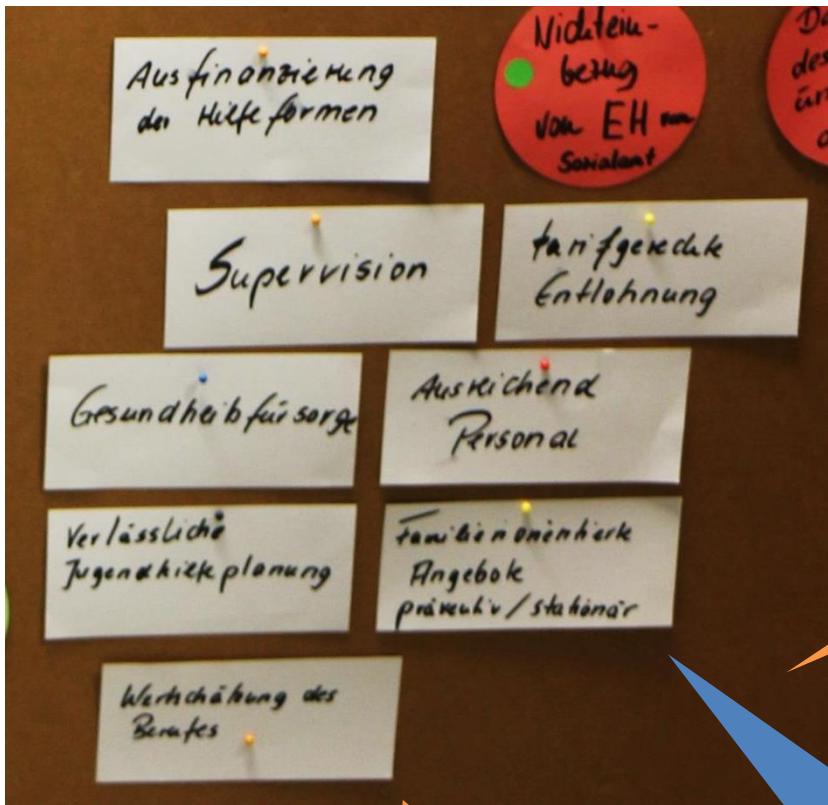 Ausfinanzierung
der Hilfeformen
Nichtein-
bezug
von EH vom
Sozialamt
Supervision
tarifgerechte
Entlohnung
Gesundheitsfürsorge
Ausreichend
Personal
Verlässliche
Jugendhilfeplanung
Familienorientierte
Angebote
präventiv/stationär
Wertschätzung des
Berufes
des